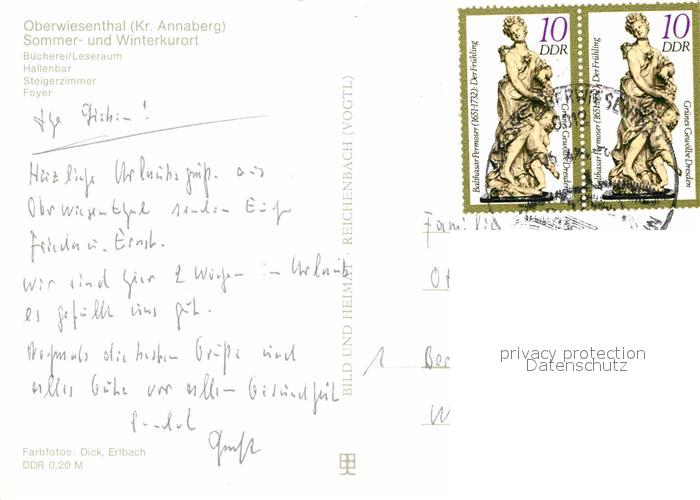 Oberwiesenthal (Kr. Annaberg)
Sommer- und Winterkurort
Bücherei/Leseraum
Hallenbar
Steigerzimmer
Foyer
Herzliche Urlaubsgrüße aus
Oberwiesenthal senden Euch
Frieda u. Ernst.
wir sind hier 2 Wochen im Urlaub
es gefällt uns gut.
Nochmals die besten Grüße und
alles Gute vor allem Gesundheit
Ernst
Farbfotos: Dick, Erlbach
DDR 0,20 M
BILD UND HEIMAT · REICHENBACH (VOGTL)
10
DDR
Balthasar Permoser (1651-1732): Der Frühling
Grünes Gewölbe Dresden
10
DDR
Balthasar Permoser (1651-1732): Der Frühling
Grünes Gewölbe Dresden
Familie
1 Ber
privacy protection
Datenschutz